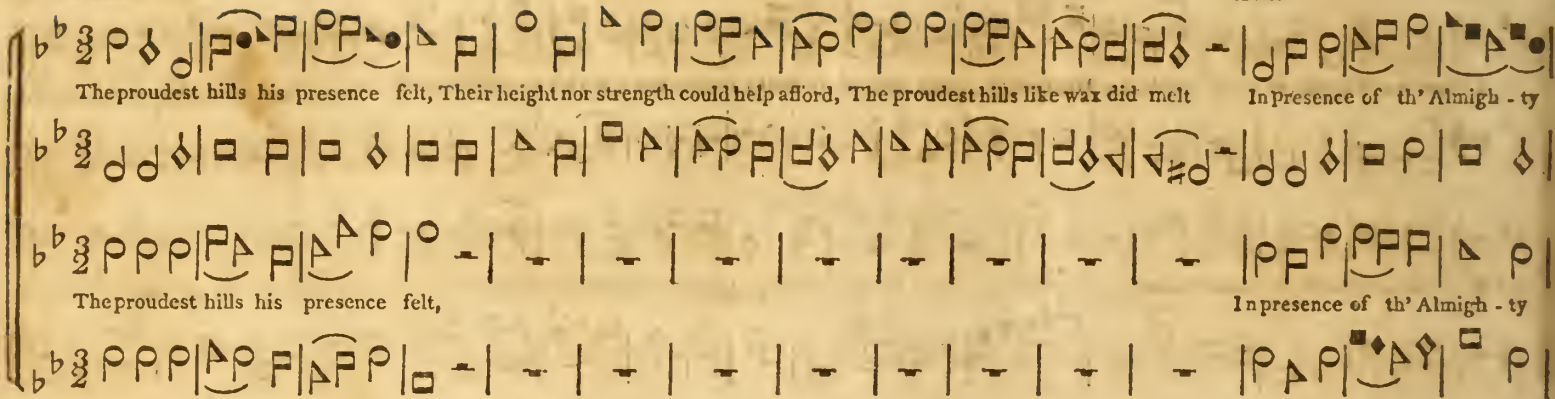 The proudest hills his presence felt, Their height nor strength could help afford, The proudest hills like wax did melt In presence of th' Almigh - ty
The proudest hills his presence felt, In presence of th' Almigh - ty